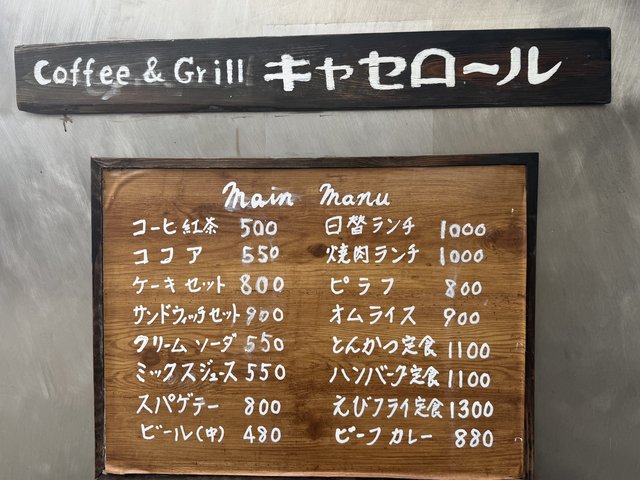 Coffee & Grill キャセロール
main manu
コーヒ紅茶 500
ココア 550
ケーキセット 800
サンドウィッチセット 900
クリームソーダ 550
ミックスジュース 550
スパゲテー 800
ビール(中) 480
日替ランチ 1000
焼肉ランチ 1000
ピラフ 800
オムライス 900
とんかつ定食 1100
ハンバーク定食 1100
えびフライ定食 1300
ビーフカレー 880